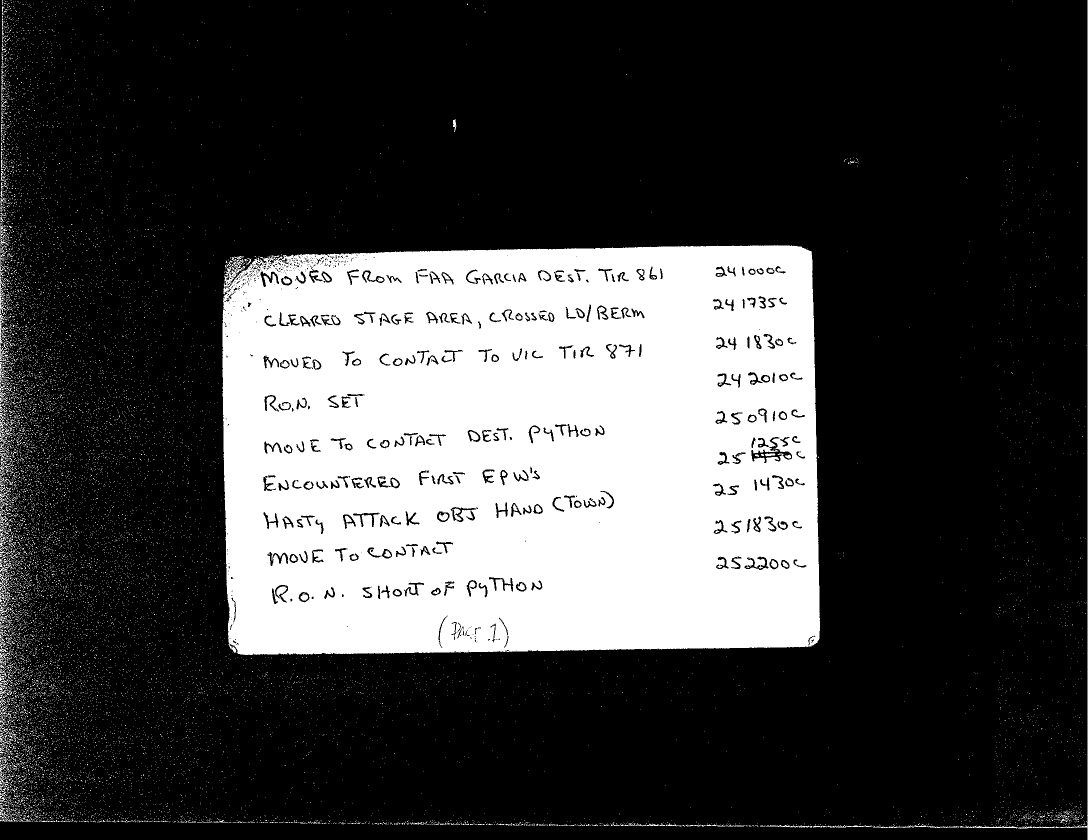 MOVED FROM FAA GARCIA DEST. TIR 861 241000C
CLEARED STAGE AREA, CROSSED LD/BERM 241735C
MOVED TO CONTACT TO VIC TIR 871 241830C
R.O.N. SET 242010C
MOVE TO CONTACT DEST. PYTHON 250910C
1255C
ENCOUNTERED FIRST EPW'S 25 1430C
HASTY ATTACK OBJ HAND (TOWN) 25 1430C
MOVE TO CONTACT 251830C
R.O.N. SHORT OF PYTHON 252200C
(PAGE 1)